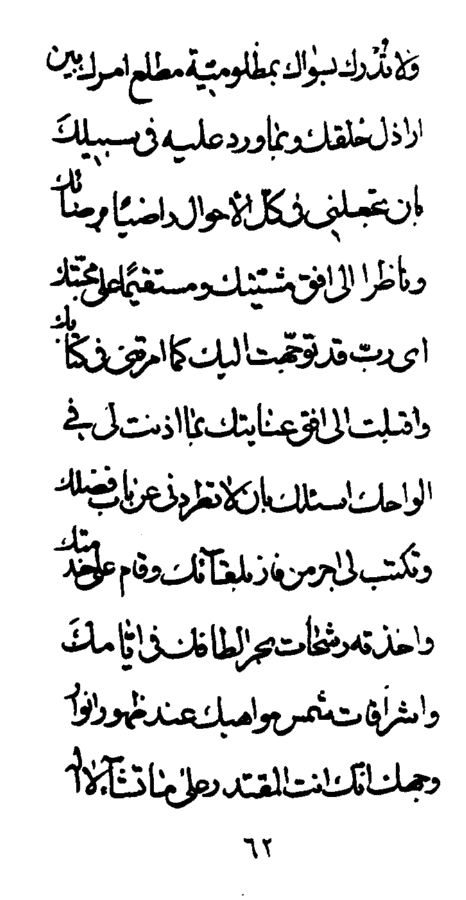 ولا تدرك بسواك بمظلومية مطلع امرك بين
اراذل خلقك وبما ورد عليه في سبيلك
بان تجعلني في كل الاحوال راضيًا برضائك
وناظرا الى افق مشيتك ومستقيمًا على محبتك
اى رب قد توجهت اليك كما امرتني في كتابك
واقبلت الى افق عنايتك بما اذنت لى في
الواحك اسئلك بان لا تطردني عن باب فضلك
وتكتب لى اجر من فاز بلقآئك وقام على خدمتك
واخذته رشحات بحر الطافك في ايامك
واشراقات شمس مواهبك عند ظهور انوار
وجهك انك انت المقتدر على ما تشآء لا اله
٦٢